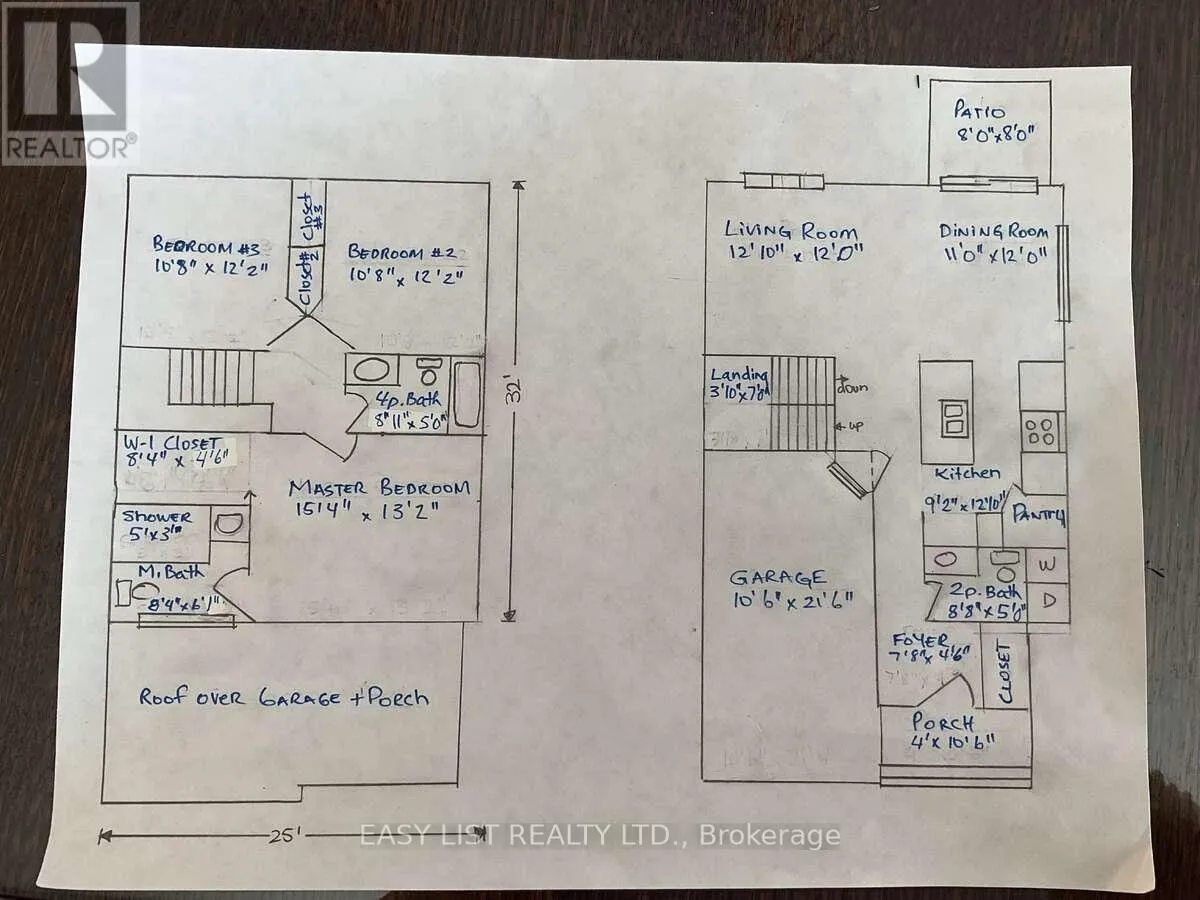 REALTOR®
BEDROOM #3
10'8" x 12'2"
Closet #3
Closet #2
BEDROOM #2
10'8" x 12'2"
4p. Bath
8'11" x 5'0"
32'
W-I CLOSET
8'4" x 4'6"
SHOWER
5'x3'
M. Bath
8'4" x 6'1"
MASTER BEDROOM
15'4" x 13'2"
ROOF OVER GARAGE + PORCH
25'
PATIO
8'0" x 8'0"
LIVING ROOM
12'10" x 12'0"
DINING ROOM
11'0" x 12'0"
Landing
3'10" x 7'0"
down
up
Kitchen
9'2" x 12'10"
PANTRY
W
D
2p. Bath
8'8" x 5'0"
GARAGE
10'6" x 21'6"
FOYER
7'8" x 4'6"
CLOSET
PORCH
4' x 10'6"
EASY LIST REALTY LTD., Brokerage